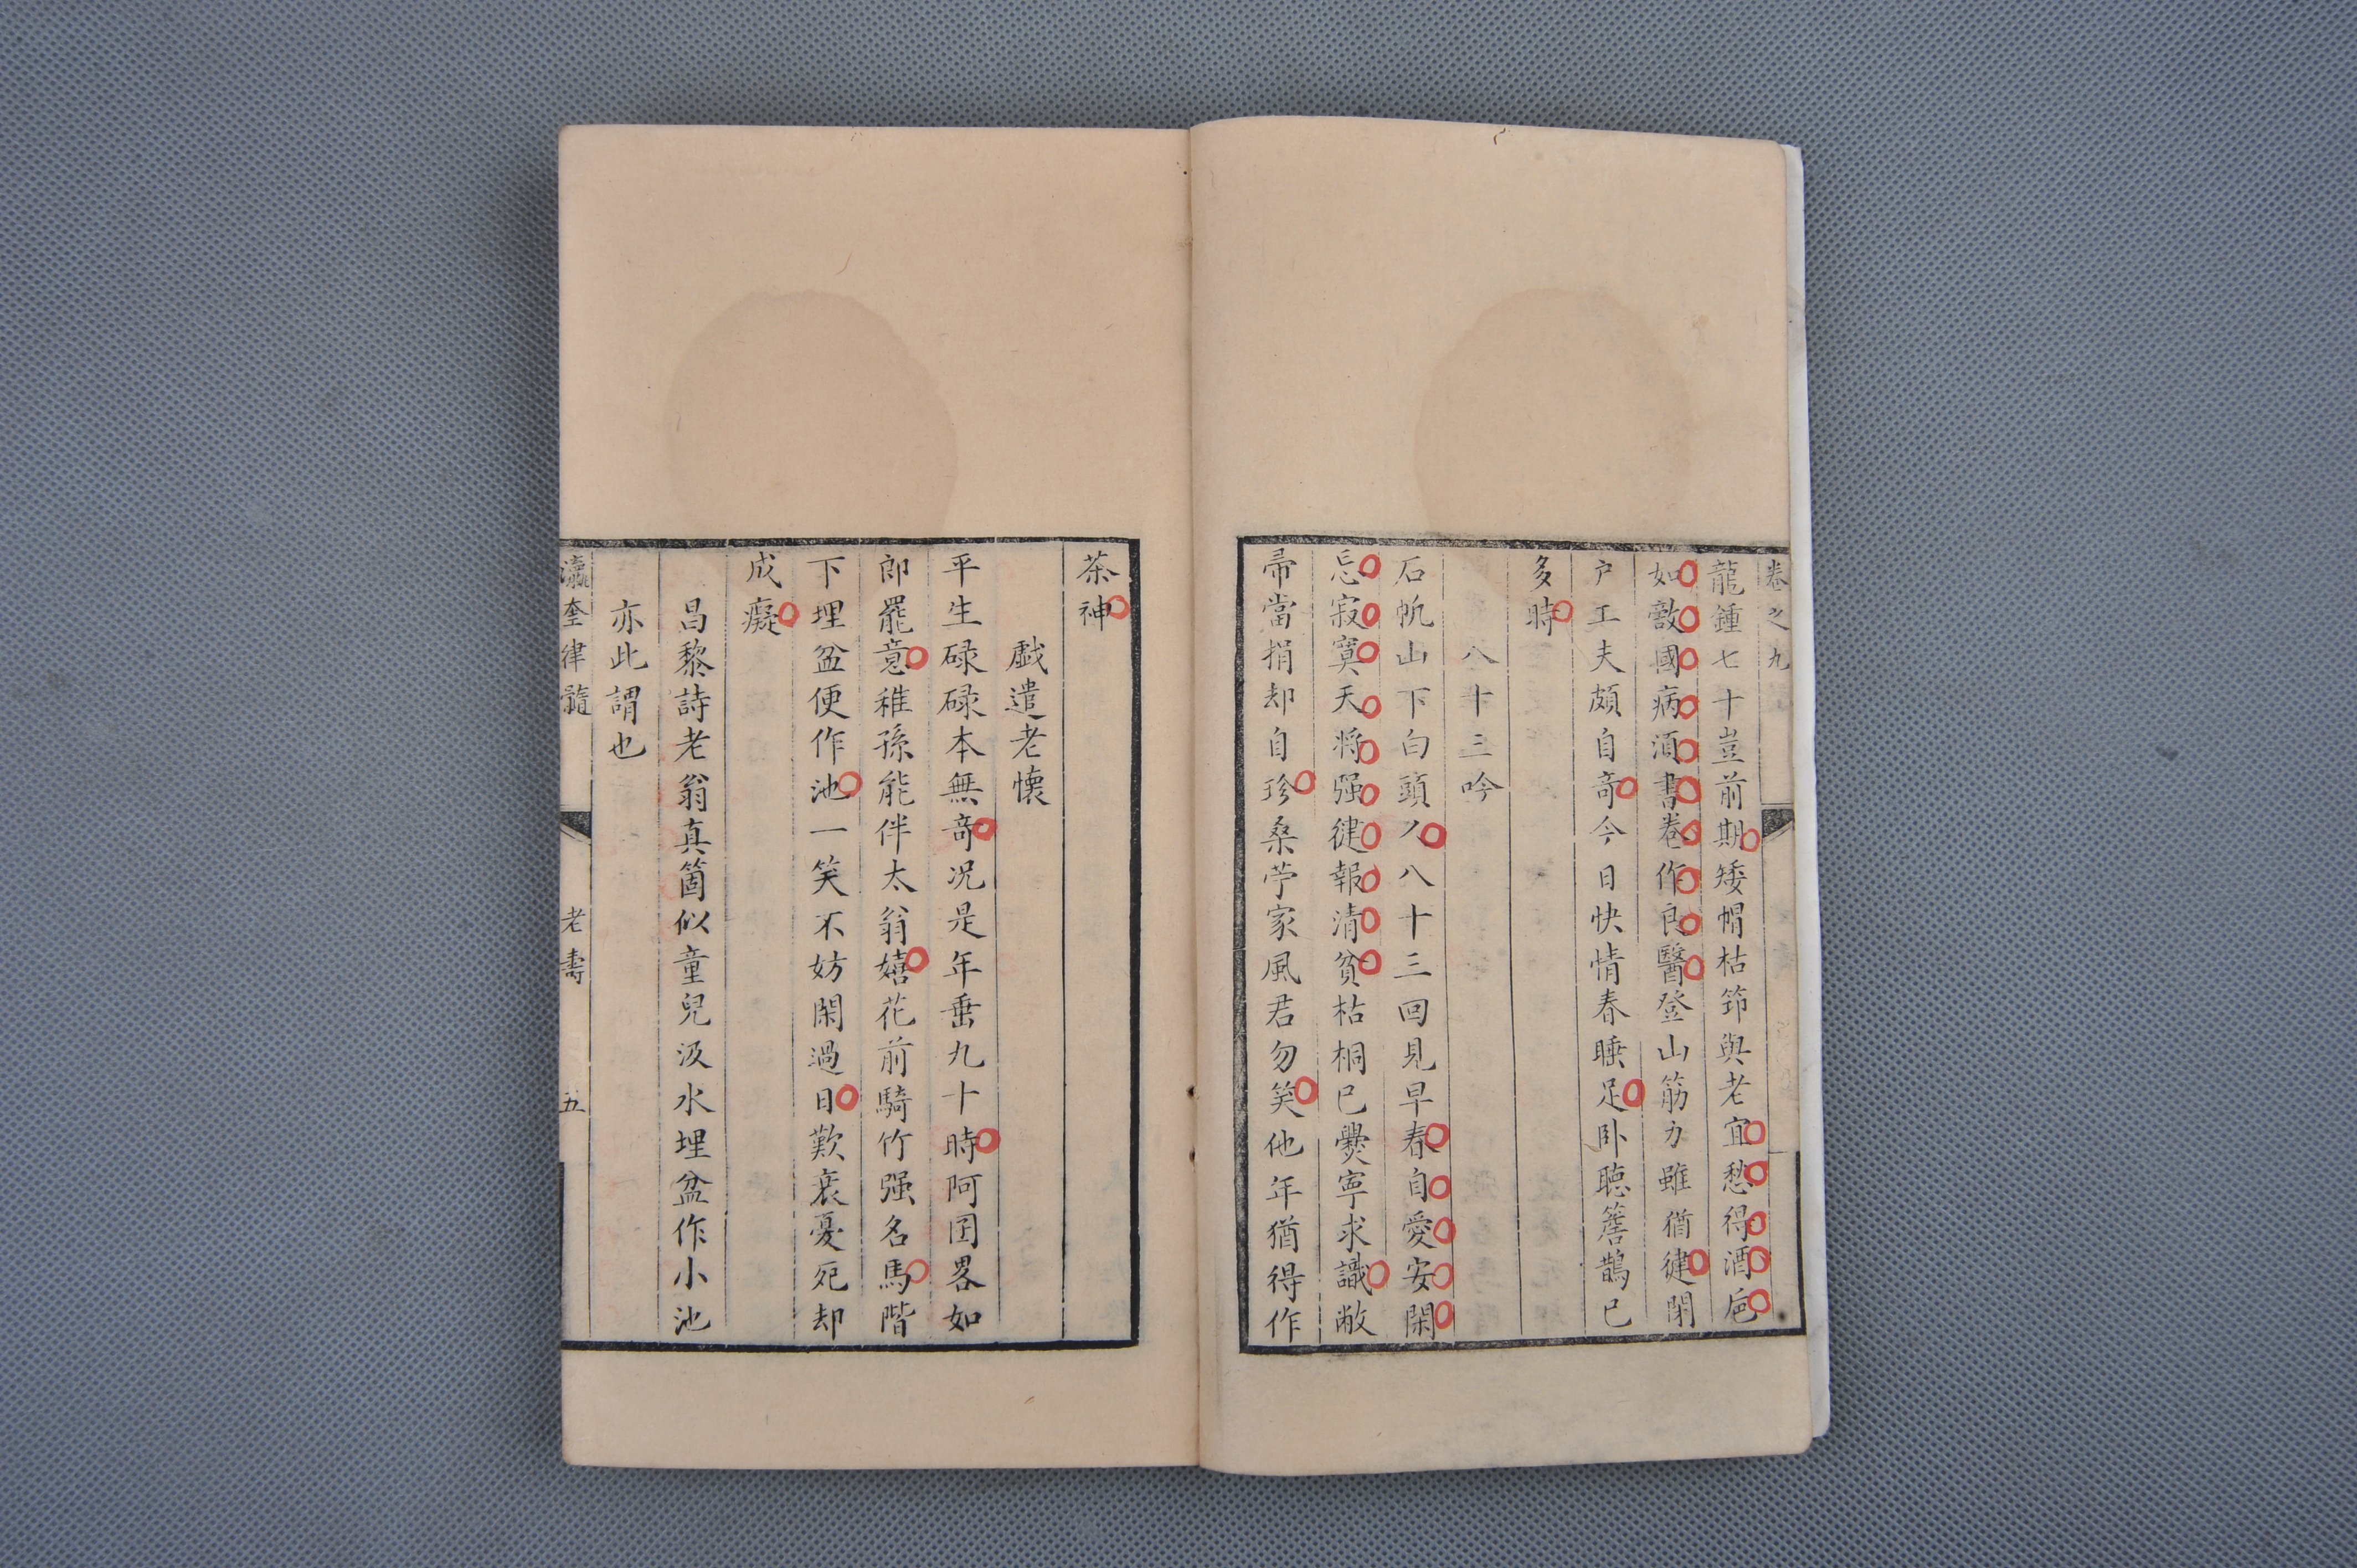 卷之九
龍鍾七十豈前期矮㡌枯笻與老宜愁得酒巵
如敵國病須書卷作良醫登山筋力雖猶健閉
户工夫頗自竒今日快情春睡足卧聴簷鵲已
多時
八十三吟
石帆山下白頭人八十三回見早春自愛安閑
忘寂寞天将强健報清貧枯桐已爨寧求識敝
帚當捐却自珍桑苧家風君勿笑他年猶得作
茶神
戯遣老懷
平生碌碌本無竒况是年垂九十時阿囝畧如
郎罷意稚孫能伴太翁嬉花前騎竹强名馬階
下埋盆便作池一笑不妨閑過日歎衰憂死却
成癡
昌黎詩老翁真箇似童兒汲水埋盆作小池
亦此謂也
瀛奎律髓 老壽 五